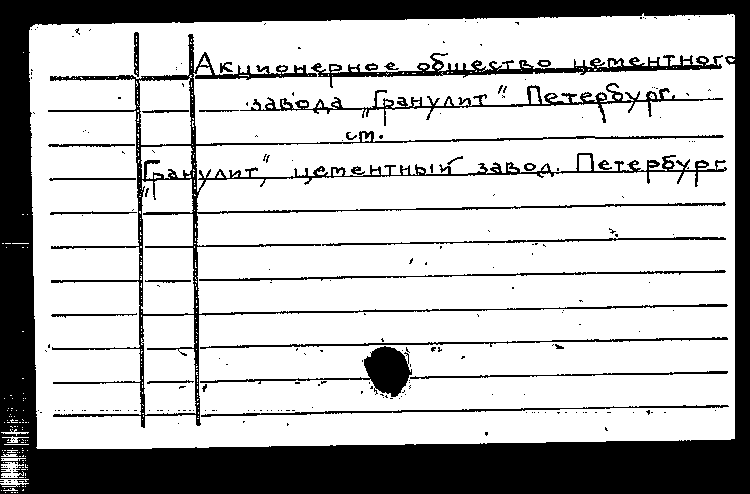 Акционерное общество цементного
завода „Гранулит“ Петербург.
см.
„Гранулит“, цементный завод. Петербург